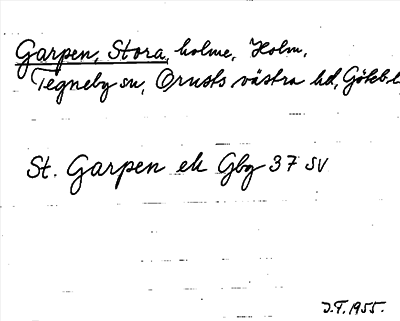 Garpen, Stora, holme, Holm,
Tegneby sn, Orusts västra hd, Götebl
St. Garpen ek Gbg 37 SV
J.T. 1955.